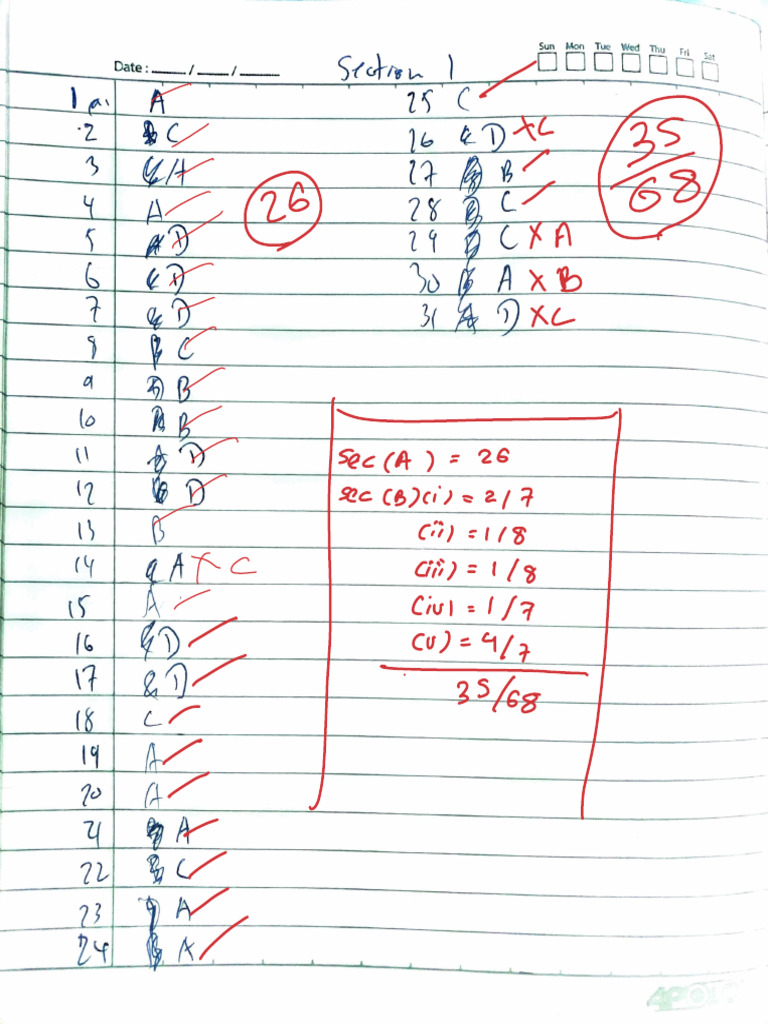 Sun Mon Tue Wed Thu Fri Sat
Date : ____ / ____ / ____
Section 1
1 A
2 C
3 A
4 A
5 D
6 D
7 D
8 C
9 B
10 B
11 D
12 D
13 B
14 A X C
15 A
16 D
17 D
18 C
19 A
20 A
21 A
22 C
23 A
24 A
26
25 C
26 D X C
27 B
28 C
29 C X A
30 A X B
31 D X C
35
68
sec (A) = 26
sec (B) (i) = 2/7
(ii) = 1/8
(iii) = 1/8
(iv) = 1/7
(v) = 4/7
35/68